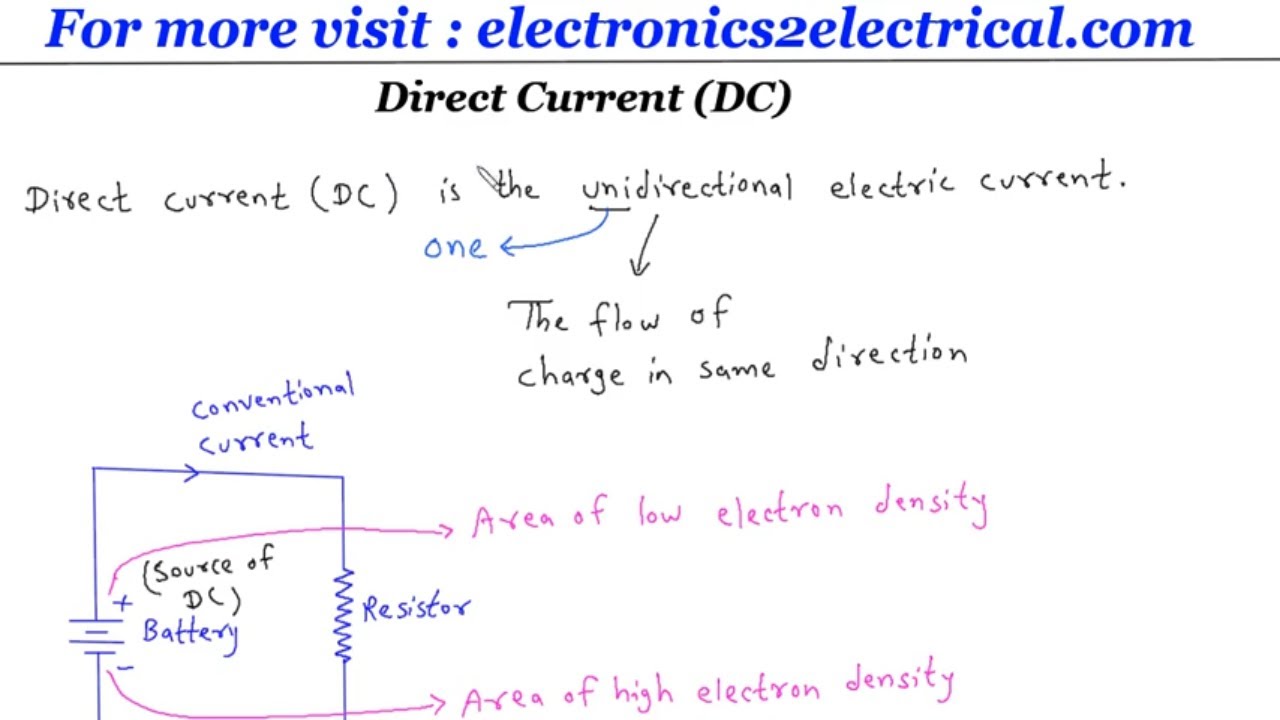 For more visit : electronics2electrical.com
Direct Current (DC)
Direct current (DC) is the unidirectional electric current.
one
The flow of
charge in same direction
conventional
current
Area of low electron density
(Source of
DC)
+
Battery
Resistor
-
Area of high electron density